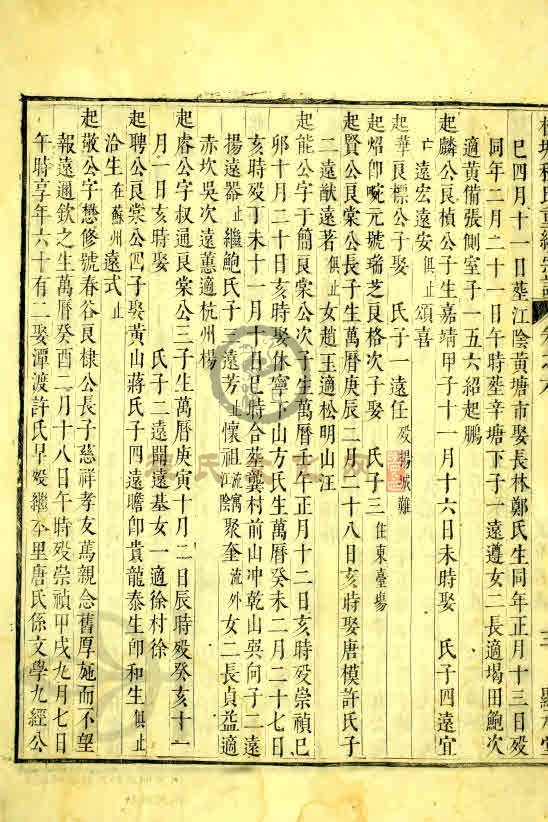 巳四月十一日塟江陰黃塘市娶長林鄭氏生同年正月十三日歿
同年二月二十一日午時塟辛塘下子一遠遵女二長適堨田鮑次
適黃備張側室子一五六紹起鵬
起麟公良楨公子生嘉靖甲子十一月十六日未時娶 氏子四遠宜
亡遠宏遠安俱止頌喜
起華良標公子娶 氏子一遠任歿揚城難
起炤卽啶元號瑞芝良格次子娶 氏子三住東臺塲
起賢公良棠公長子生萬曆庚辰二月二十八日亥時娶唐模許氏子
二遠猷遠著俱止女趙玉適松明山汪
起能公字于簡良棠公次子生萬曆壬午正月十二日亥時歿崇禎己
卯十月二十日亥時娶休寧千山方氏生萬曆癸未二月二十七日
亥時歿丁未十一月十日巳時合塟龔村前山冲乾山巽向子二遠
揚遠器止繼鮑氏子三遠芳止懷祖流寓江陰聚奎流外女二長貞益適
赤坎吳次遠蕙適杭州楊
起睿公字叔通良棠公三子生萬曆庚寅十月二日辰時歿癸亥十一
月一日亥時娶 氏子二遠開遠基女一適徐村徐
起聘公良棠公四子娶黃山蔣氏子四遠聸卽貴龍泰生卽和生俱止
洽生在蘇州遠式止
起敬公字懋修號春谷良棣公長子慈祥孝友萬親念舊厚施而不望
報遠邇欽之生萬曆癸酉二月十八日午時歿崇禎甲戌九月七日
午時享年六十有二娶潭渡許氏早歿繼本里唐氏係文學九經公